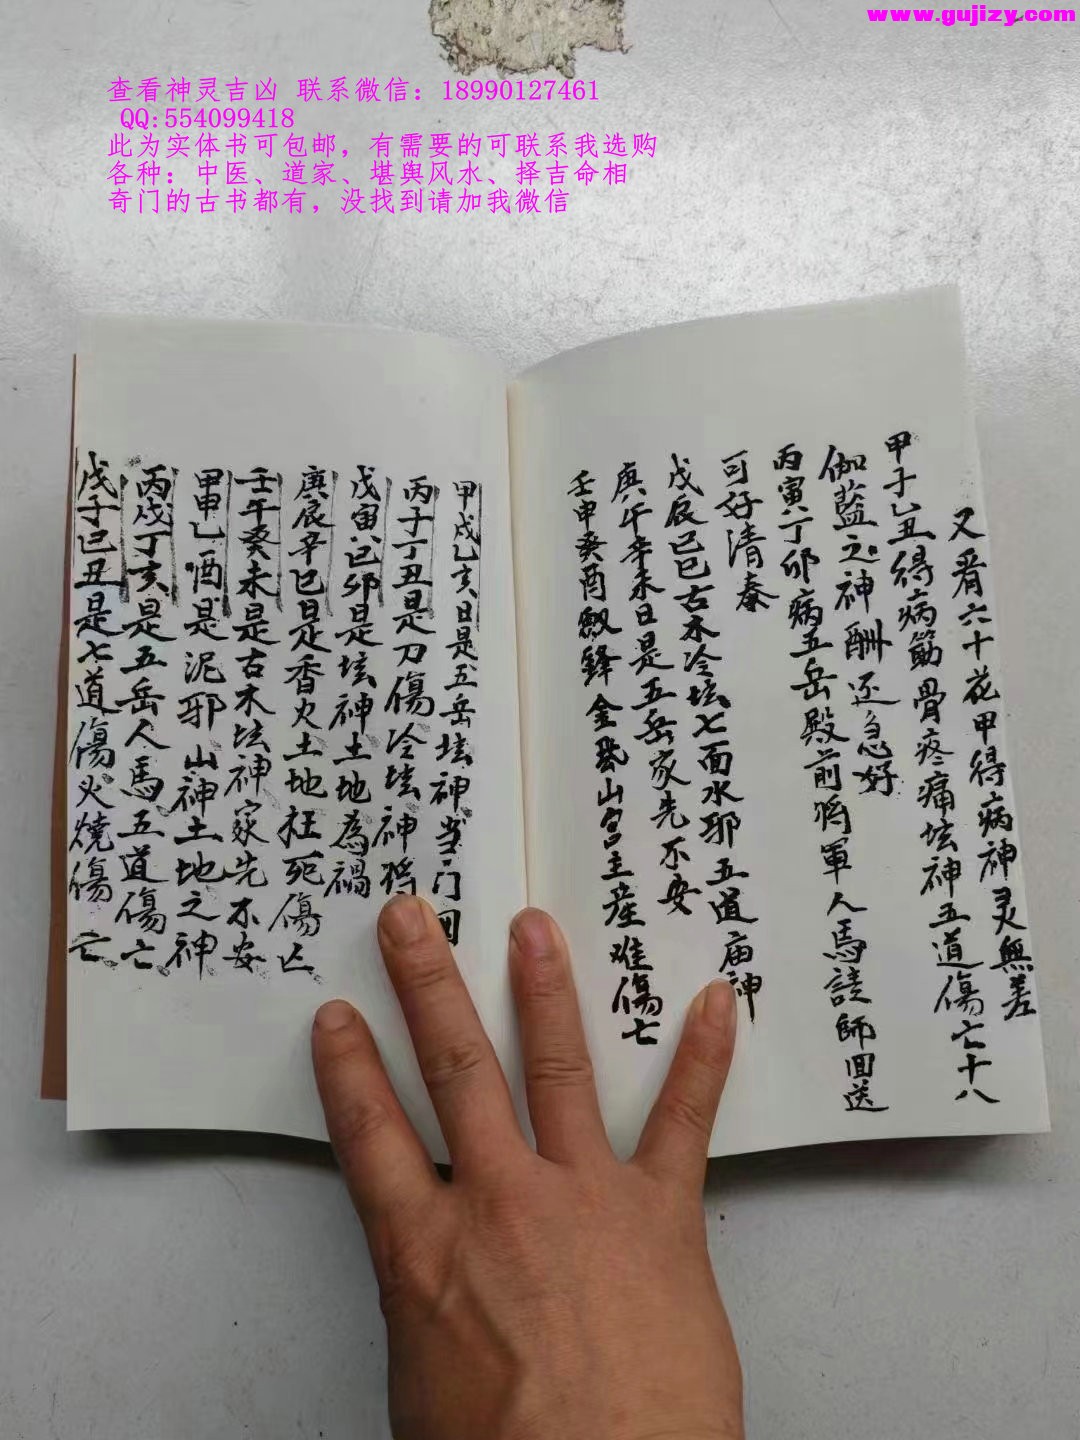 www.gujizy.com
查看神灵吉凶 联系微信：18990127461
QQ:554099418
此为实体书可包邮，有需要的可联系我选购
各种：中医、道家、堪舆风水、择吉命相
奇门的古书都有，没找到请加我微信
又看六十花甲得病神灵無差
甲子乙丑得病筋骨疼痛坛神五道傷亡十八
伽藍之神酬还急好
丙寅丁卯病五岳殿前将軍人馬請師回送
可好清泰
戊辰己巳古木冷坛七面水邪五道庙神
庚午辛未日是五岳家先不安
壬申癸酉劍鋒金山宮主産难傷亡
甲戌乙亥日是五岳坛神当门
丙子丁丑是刀傷冷坛神将
戊寅己卯是坛神土地為禍
庚辰辛巳是香火土地枉死傷亡
壬午癸未是古木坛神家先不安
甲申乙酉是泥邪山神土地之神
丙戌丁亥是五岳人馬五道傷亡
戊子己丑是七道傷火燒傷亡